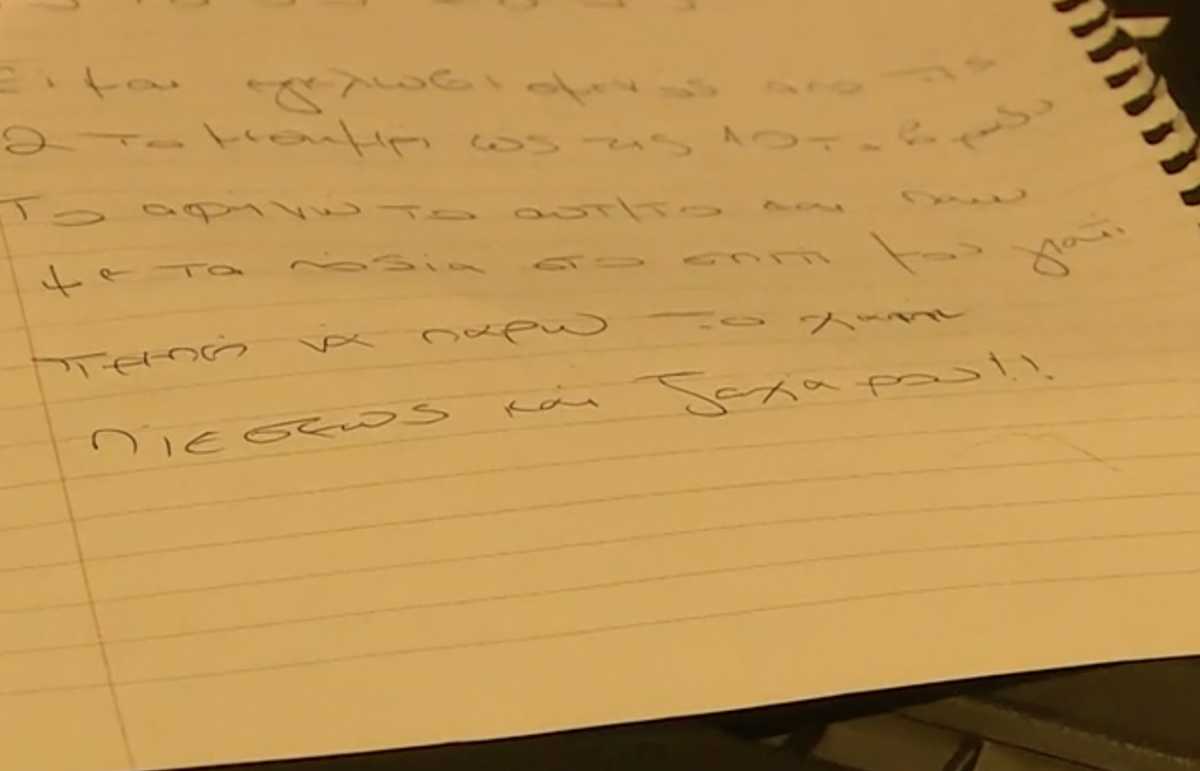 Είμαι εγκλωβισμένος απο τις
2 το μεσημέρι ως τις 10 το βραδυ
Το αφηνω το αυτ/το και παω
με τα πόδια στο σπιτι μου γιατί
πρεπει νά παρω το χαπι
πιεσεως και ζαχάρου!!